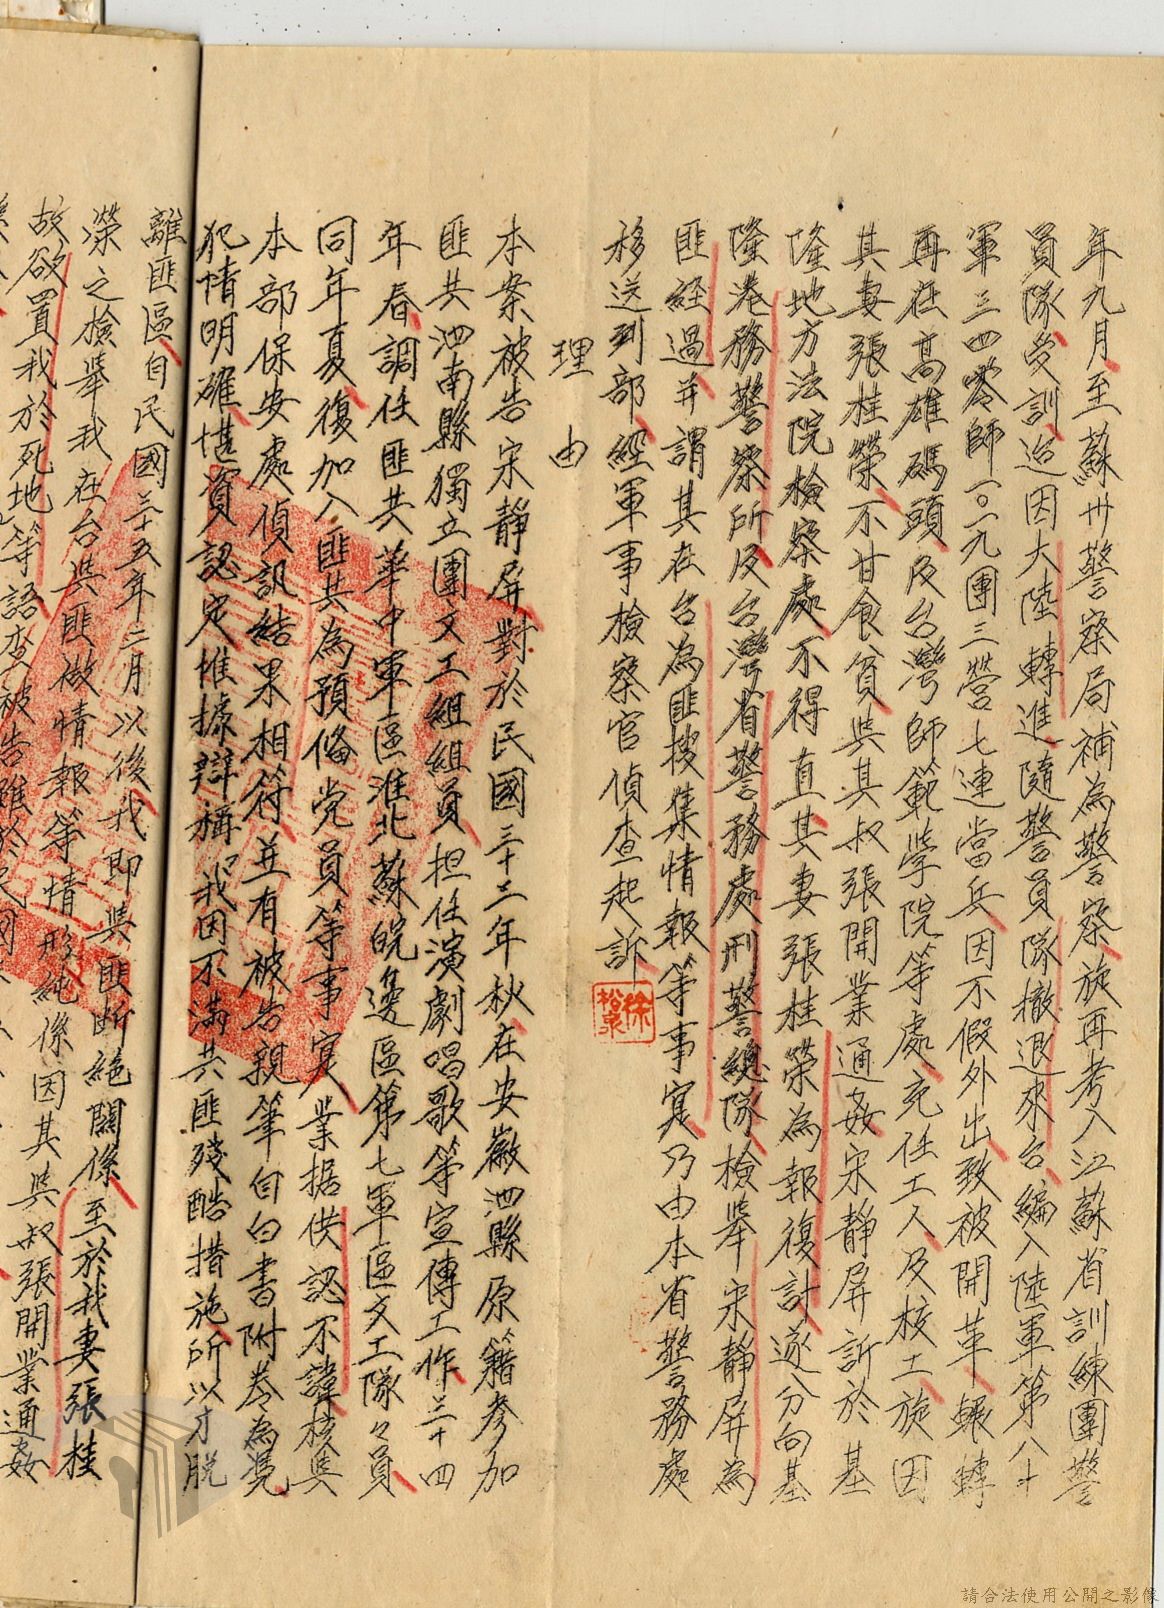 年九月至蘇州警察局補為警察旋再考入江蘇省訓練團警
員隊受訓迨因大陸轉進隨警員隊撤退來台編入陸軍第八十
軍三四零師一〇一九團三營七連當兵因不假外出致被開革輾轉
再在高雄碼頭及台灣師範學院等處充任工人及校工旋因
其妻張桂榮不甘食貧與其叔張開業通姦宋靜屏訴於基
隆地方法院檢察處不得直其妻張桂榮為報復計遂分向基
隆港務警察所及台灣省警務處刑警總隊檢舉宋靜屏為
匪經過并謂其在台為匪搜集情報等事寔乃由本省警務處
移送到部經軍事檢察官偵查起訴
徐松泉
理由
本案被告宋靜屏對於民國三十三年秋在安徽泗縣原籍參加
匪共泗南縣獨立團文工組組員担任演劇唱歌等宣傳工作三十四
年春調任匪共華中軍區淮北蘇皖邊區第七軍區文工隊々員
同年夏復加入匪共為預備党員等事寔業据供認不諱核與
本部保安處偵訊結果相符並有被告親筆自白書附卷為凭
犯情明確堪資認定惟據辯稱「我因不滿共匪殘酷措施所以才脫
離匪區自民國三十五年二月以後我即與匪斷絕關係至於我妻張桂
榮之檢舉我在台與匪做情報等情形純係因其與叔張開業通姦
故欲置我於死地」等語查被告雖於民國
請合法使用公開之影像